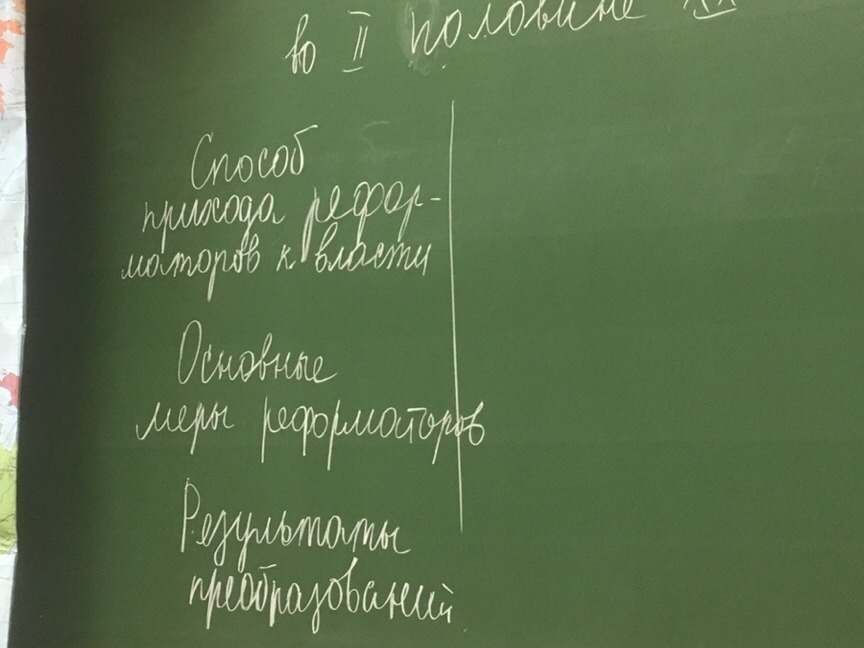 во II половине XX
Способ
прихода рефор-
маторов к власти
Основные
меры реформаторов
Результаты
преобразований